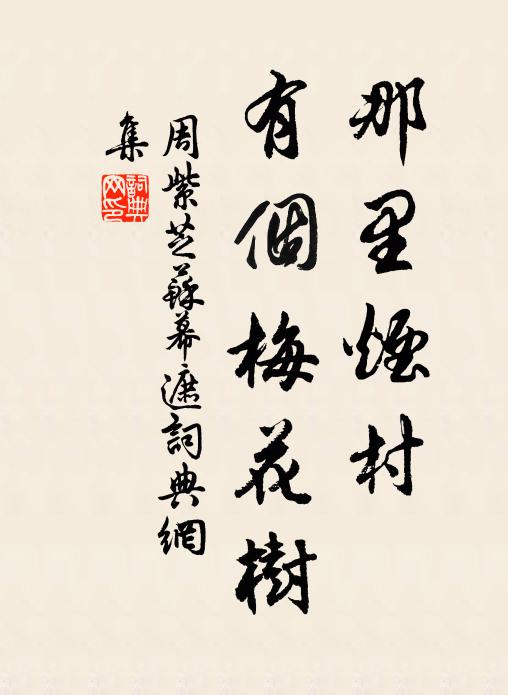 那里煙村
有個梅花樹
周紫芝蘇幕遮詞典網
集
詞典
网印